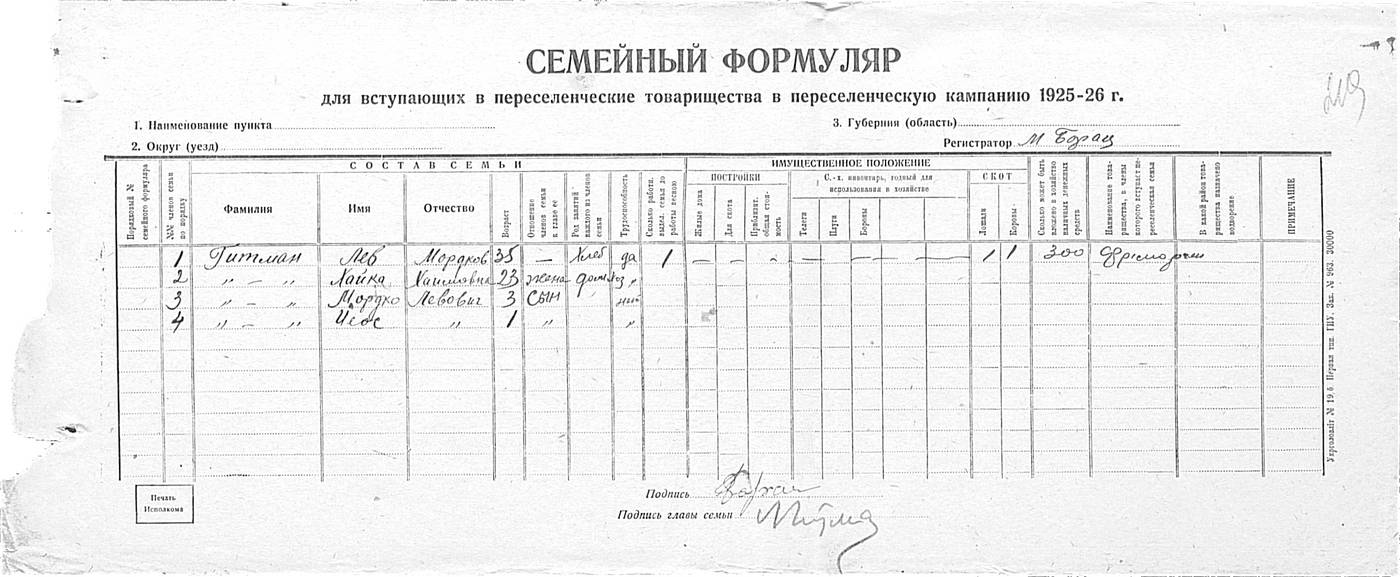 СЕМЕЙНЫЙ ФОРМУЛЯР
для вступающих в переселенческие товарищества в переселенческую кампанию 1925-26 г.
1. Наименование пункта
3. Губерния (область)
2. Округ (уезд)
Регистратор М
СОСТАВ СЕМЬИ
ИМУЩЕСТВЕННОЕ ПОЛОЖЕНИЕ
Порядковый № семейного формуляра
№№ членов семьи по порядку
Фамилия
Имя
Отчество
Возраст
Отношение членов семьи к главе ее
Род занятий каждого из членов семьи
Трудоспособность
Сколько работн. выдел. семья до работы весною
ПОСТРОЙКИ
Жилые дома
Для скота
Приблизит. общая стоимость
С.-х. инвентарь, годный для использования в хозяйстве
Телеги
Плуги
Бороны
СКОТ
Лошади
Коровы
Сколько может быть вложено в хозяйство наличных денежных средств
Наименование товарищества, в члены которого вступает переселенческая семья
В какой район товарищества назначено водворение
ПРИМЕЧАНИЕ
1 Гитман Лев Мордков 35 — Хлеб да 1 — — - — — — — 1 1 300
2 „ — „ Хайка Хаимовна 23 жена „
3 „ — „ Мордко Левович 3 сын
4 „ — „ „ 1 „ „
Печать Исполкома
Подпись
Подпись главы семьи
Укрголовліт № 19.б. Первая тип. ГПУ. Зак. № 963. 30000